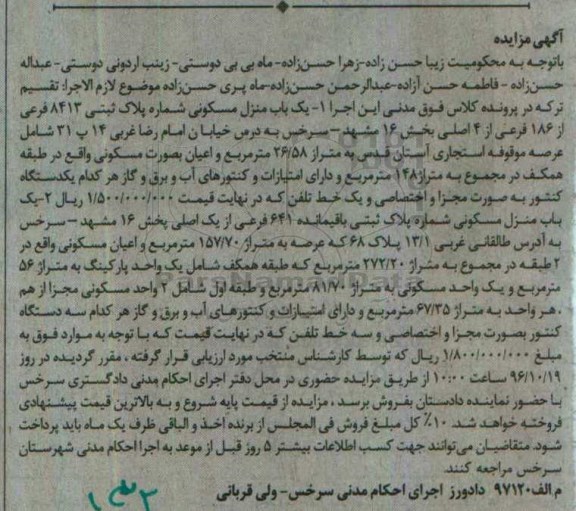 آگهی مزایده
باتوجه به محکومیت زیبا حسن زاده-زهرا حسن‌زاده-ماه بی بی دوستی- زینب اردونی دوستی- عبداله
حسن‌زاده - فاطمه حسن آزاده-عبدالرحمن حسن‌زاده-ماه پری حسن‌زاده موضوع لازم الاجرا: تقسیم
ترکه در پرونده کلاس فوق مدنی این اجرا ۱- یک باب منزل مسکونی شماره پلاک ثبتی ۸۴۱۳ فرعی
از ۱۸۶ فرعی از ۴ اصلی بخش ۱۶ مشهد – سرخس به درس خیابان امام رضا غربی ۱۴ پ ۳۱ شامل
عرصه موقوفه استجاری آستان قدس به متراژ ۲۶/۵۸ مترمربع و اعیان بصورت مسکونی واقع در طبقه
همکف در مجموع به متراژ ۱۴۸ مترمربع و دارای امتیازات و کنتورهای آب و برق و گاز هر کدام یکدستگاه
کنتور به صورت مجزا و اختصاصی و یک خط تلفن که در نهایت قیمت ۱/۵۰۰/۰۰۰/۰۰۰ ریال ۲-یک
باب منزل مسکونی شماره پلاک ثبتی باقیمانده ۶۴۱ فرعی از یک اصلی بخش ۱۶ مشهد – سرخس
به آدرس طالقانی غربی ۱۳/۱ پلاک ۶۸ که عرصه به متراژ ۱۵۷/۷۰ مترمربع و اعیان مسکونی واقع در
۲ طبقه در مجموع به متراژ ۲۷۲/۲۰ مترمربع که طبقه همکف شامل یک واحد پارکینگ به متراژ ۵۶
مترمربع و یک واحد مسکونی به متراژ ۸۱/۷۰ مترمربع و طبقه اول شامل ۲ واحد مسکونی مجزا از هم
، هر واحد به متراژ ۶۷/۳۵ مترمربع و دارای امتیازات و کنتورهای آب و برق و گاز هر کدام سه دستگاه
کنتور بصورت مجزا و اختصاصی و سه خط تلفن که در نهایت قیمت که با توجه به موارد فوق به
مبلغ ۱/۸۰۰/۰۰۰/۰۰۰ ریال که توسط کارشناس منتخب مورد ارزیابی قرار گرفته ، مقرر گردیده در روز
۹۶/۱۰/۱۹ ساعت ۱۰:۰۰ از طریق مزایده حضوری در محل دفتر اجرای احکام مدنی دادگستری سرخس
با حضور نماینده دادستان بفروش برسد ، مزایده از قیمت پایه شروع و به بالاترین قیمت پیشنهادی
فروخته خواهد شد. ۱۰٪ کل مبلغ فروش فی المجلس از برنده اخذ و الباقی ظرف یک ماه باید پرداخت
شود. متقاضیان می‌توانند جهت کسب اطلاعات بیشتر ۵ روز قبل از موعد به اجرا احکام مدنی شهرستان
سرخس مراجعه کنند.
م.الف۹۷۱۲۰ دادورز اجرای احکام مدنی سرخس- ولی قربانی